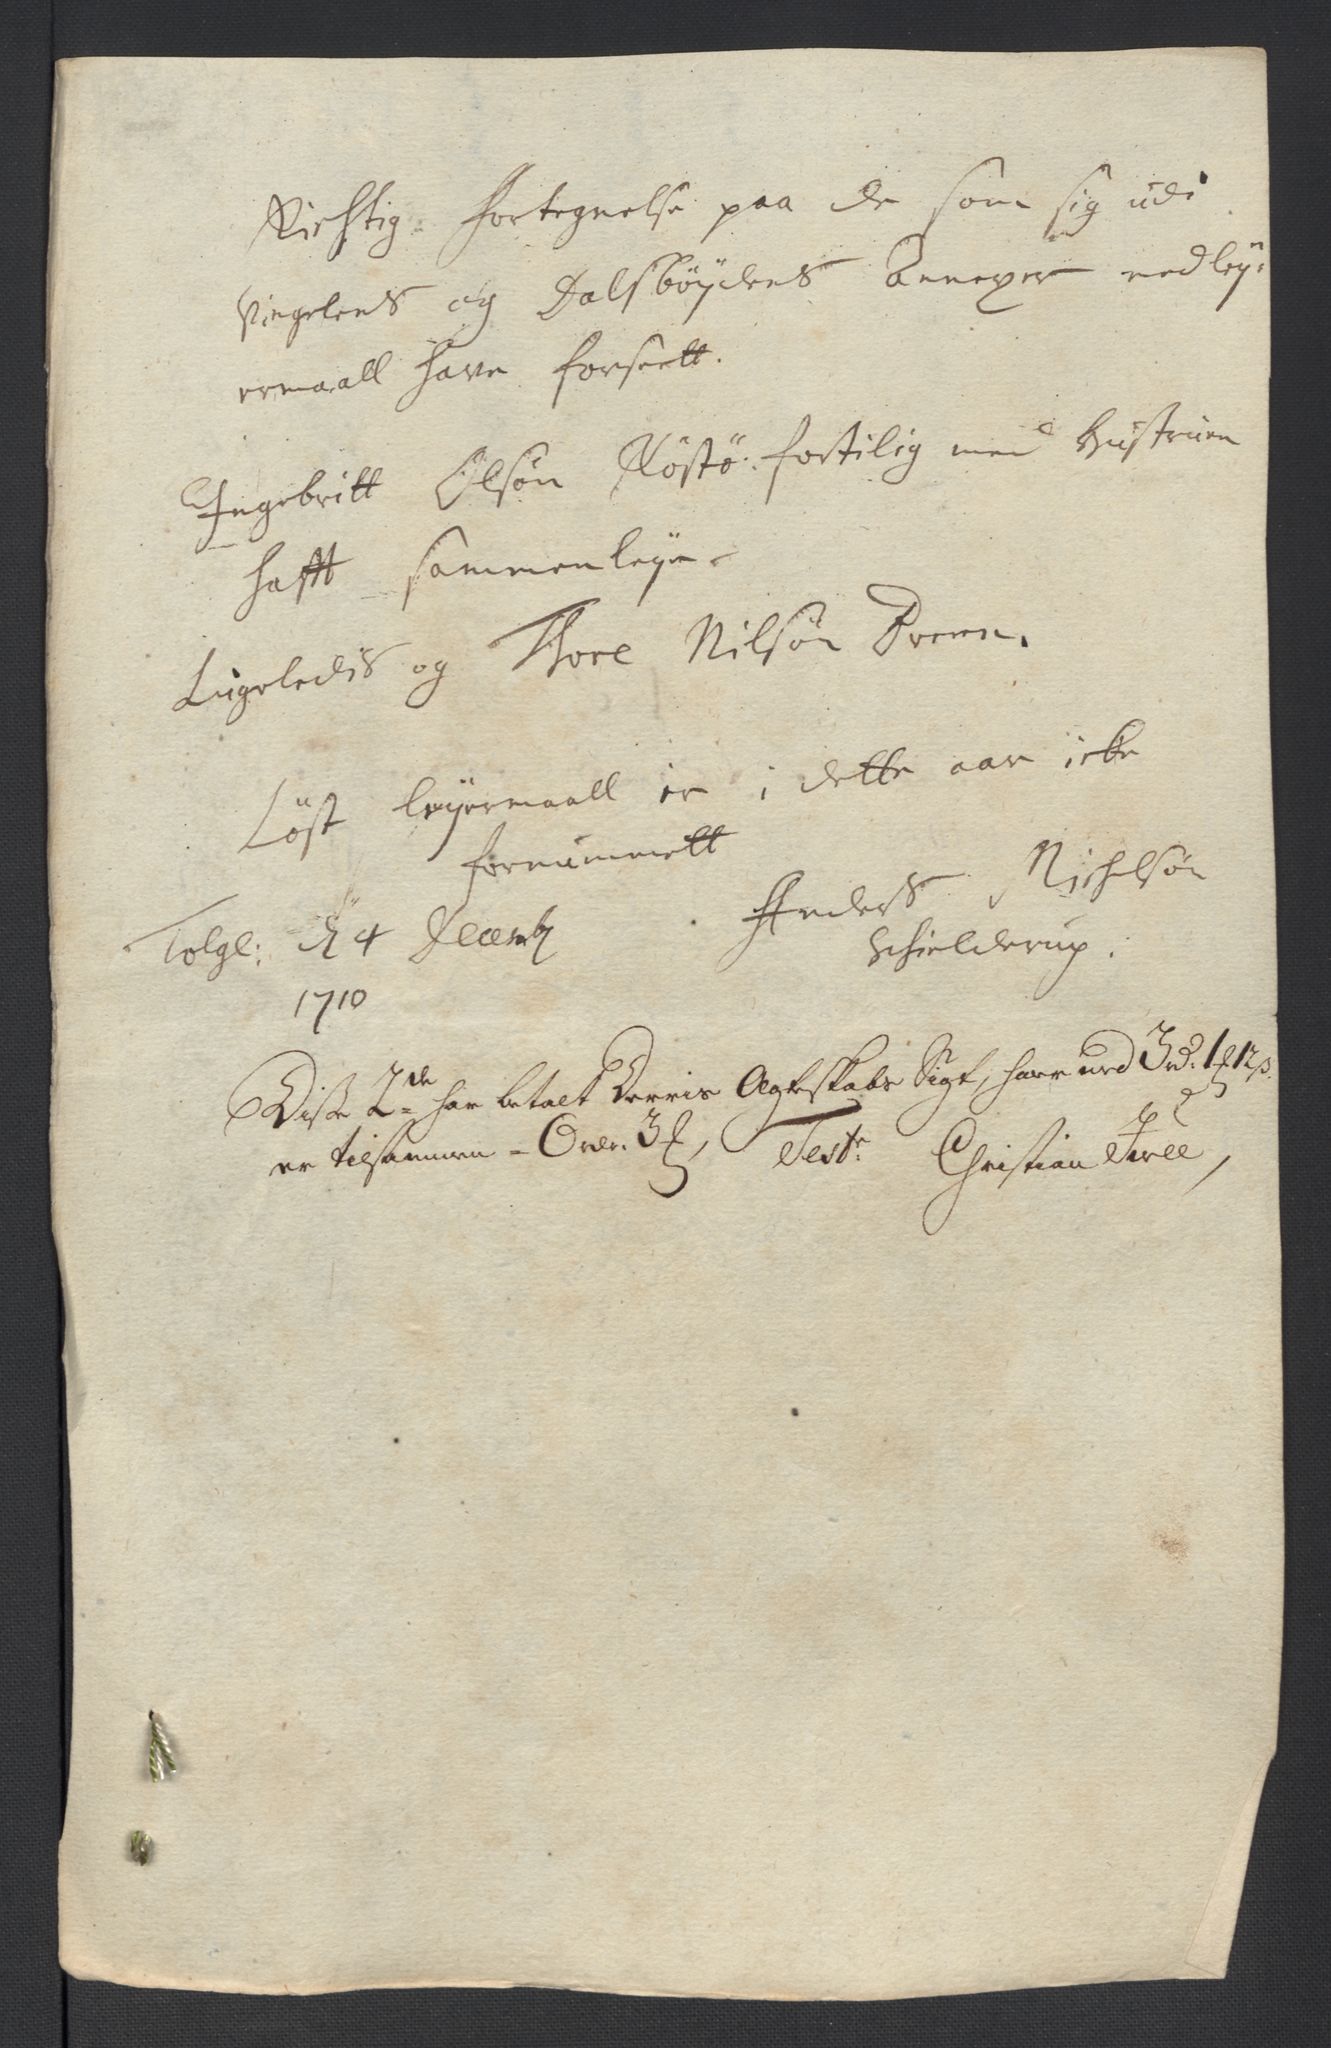 Richtig fortegnelse paa de som sig udi
Vingelens og Dalsbøydens Annexer med ley-
ermaall have forseett.
Ingebritt Olsøn Røstø: fortilig med hustruen
hafft sammenleye.
Ligeledis og Thore Nilsøn Moen.
Løst leyermaall er i dette aar icke
fornummett
Tolgl: d 4 Decemb
Anders Nichelsøn
Schielderup.
1710
Disse 2de har betalt Derris Ægteskabs Sigt, huer med 3 rd. 1 ℔ 12 s.
er tilsammen - 6 rdr. 3 ℔, Test: Christian